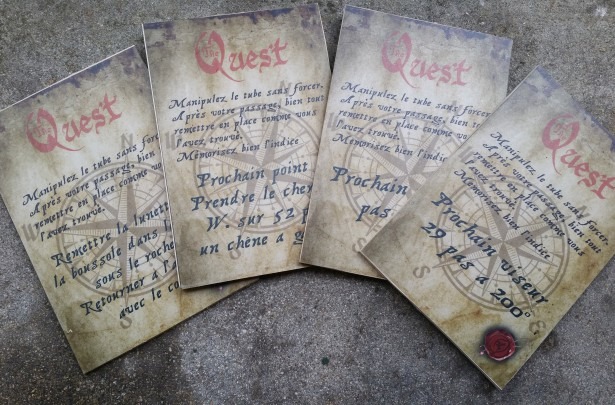 The
Quest
Manipulez le tube sans for
Après votre passage, bien
remettre en place comme
l'avez trouvé.
Mémorisez bien
Remettre la lunett
la boussole dans
sous le roche
Retourner à l'A
avec le co
The
Quest
Manipulez le tube sans forcer,
Après votre passage, bien tout
remettre en place comme vous
l'avez trouvé.
Mémorisez bien l'indice
Prochain point
Prendre le che
W. sur 52 p
un chêne à g
The
Quest
Manipulez le tube sans forcer,
Après votre passage, bien tout
remettre en place comme vous
l'avez trouvé.
Mémorisez bien l'indice
Prochain
pas
The
Quest
Manipulez le tube sans forcer,
Après votre passage, bien tout
remettre en place comme vous
l'avez trouvé.
Mémorisez bien l'indice
Prochain viseur
29 pas à 200°